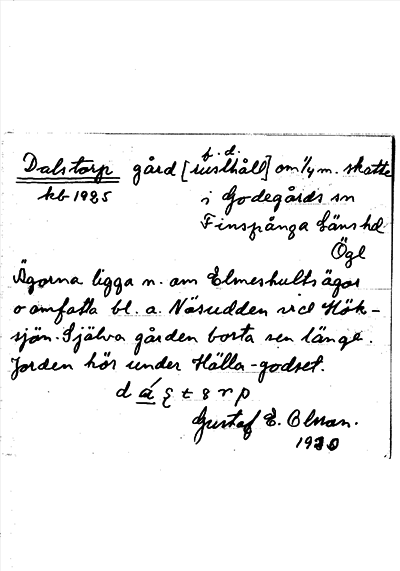 f. d.
Dalstorp gård [rusthåll] om 1/4 m. skatte
kb 1985 i Godegårds sn
Finspånga läns hd
Ögl
Ägorna ligga n. om Elmeshults ägor
o omfatta bl. a. Näsudden vid Hök-
sjön. Själva gården borta sen länge.
Jorden hör under Hälla-godset.
d á
Gustaf E. Olsson.